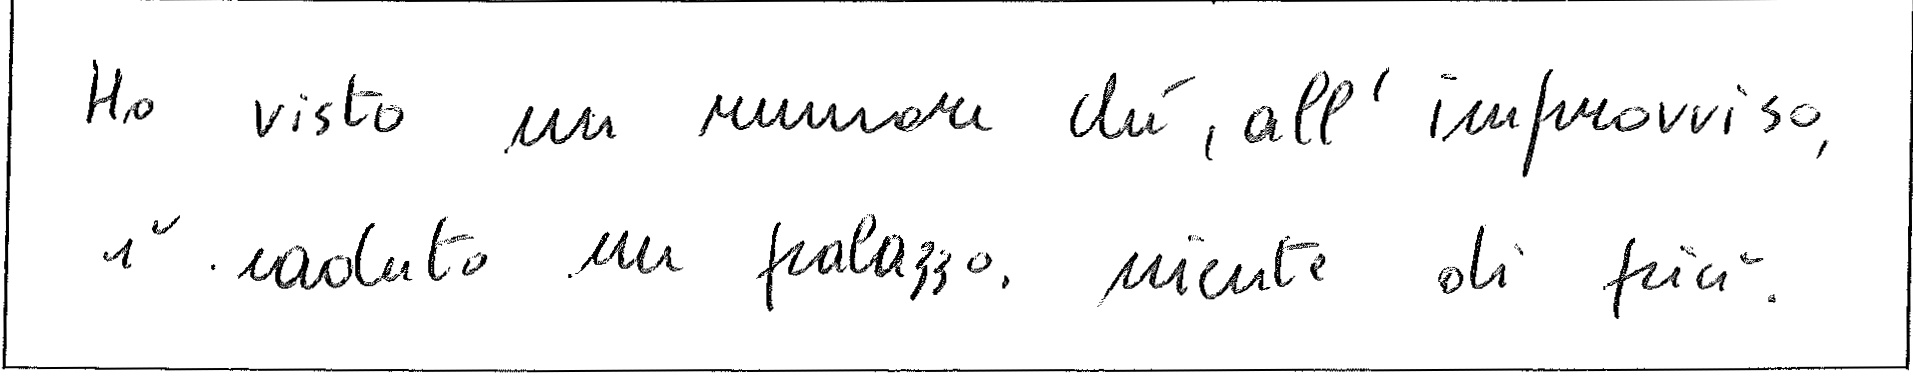 Ho visto un rumore ché, all'improvviso,
è caduto un palazzo. niente di più.